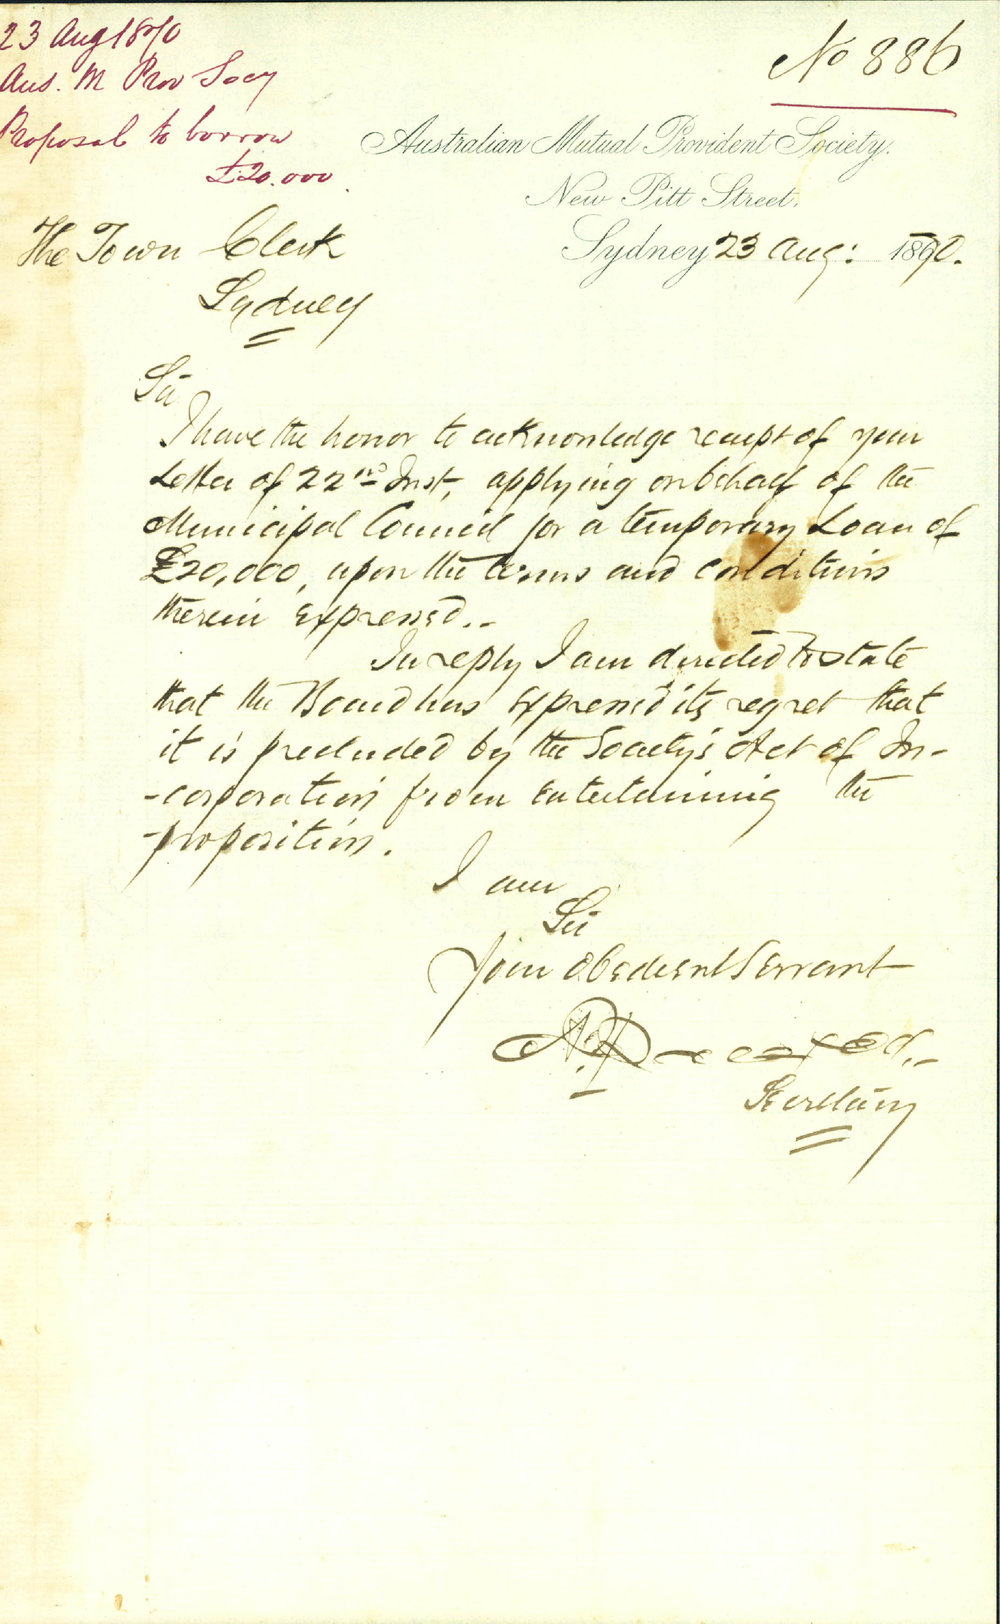 23 Aug 1870
Aus. M Prov Socy
Proposal to borrow
£20.000
No 886
Australian Mutual Provident Society.
New Pitt Street.
Sydney 23 Aug: 1870.
The Town Clerk
Sydney
Sir
I have the honor to acknowledge receipt of your
Letter of 22nd Inst, applying on behalf of the
Municipal Council for a temporary Loan of
£20,000, upon the terms and conditions
therein expressed..
In reply I am directed to state
that the Board has expressed its regret that
it is precluded by the Society's Act of In-
-corporation from entertaining the
-proposition.
I am
Sir
Your Obedient Servant
Secretary